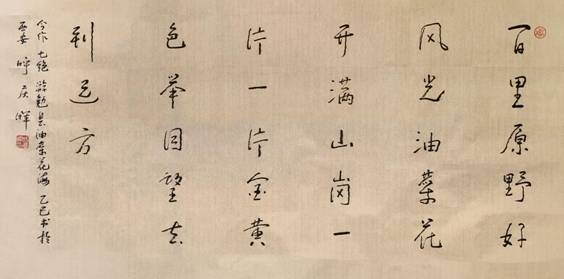 百里原野好
风光油菜花
开满山岗一
片一片金黄
色举目望去
到远方
今作七绝油菜花海 乙巳书於
西安